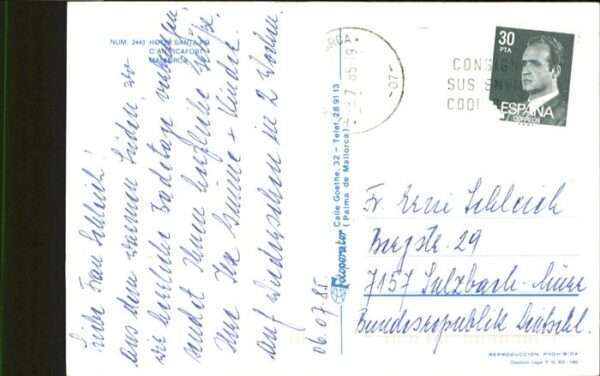 NUM. 2443 HOTEL SANTA
C'AN PICAFORT
MALLORCA
Liebe Frau Schleich!
aus dem warmen Süden, wo
wir herrliche Badetage verbringen,
sendet Ihnen herzliche Grüße
Ihre + Kinder.
auf Wiedersehen in 2 Wochen.
06.07.85
Fotoperator Calle Goethe, 32 - Telef. 28 91 13
(Palma de Mallorca)
7 85 19
-07
CONSIGN
SUS ENV
CODI
30
PTA
ESPAÑA
CORREOS
Fr. Erni Schleich
Bergstr. 29
7157 Sulzbach-Murr
Bundesrepublik Deutschl.
REPRODUCCION PROHIBIDA